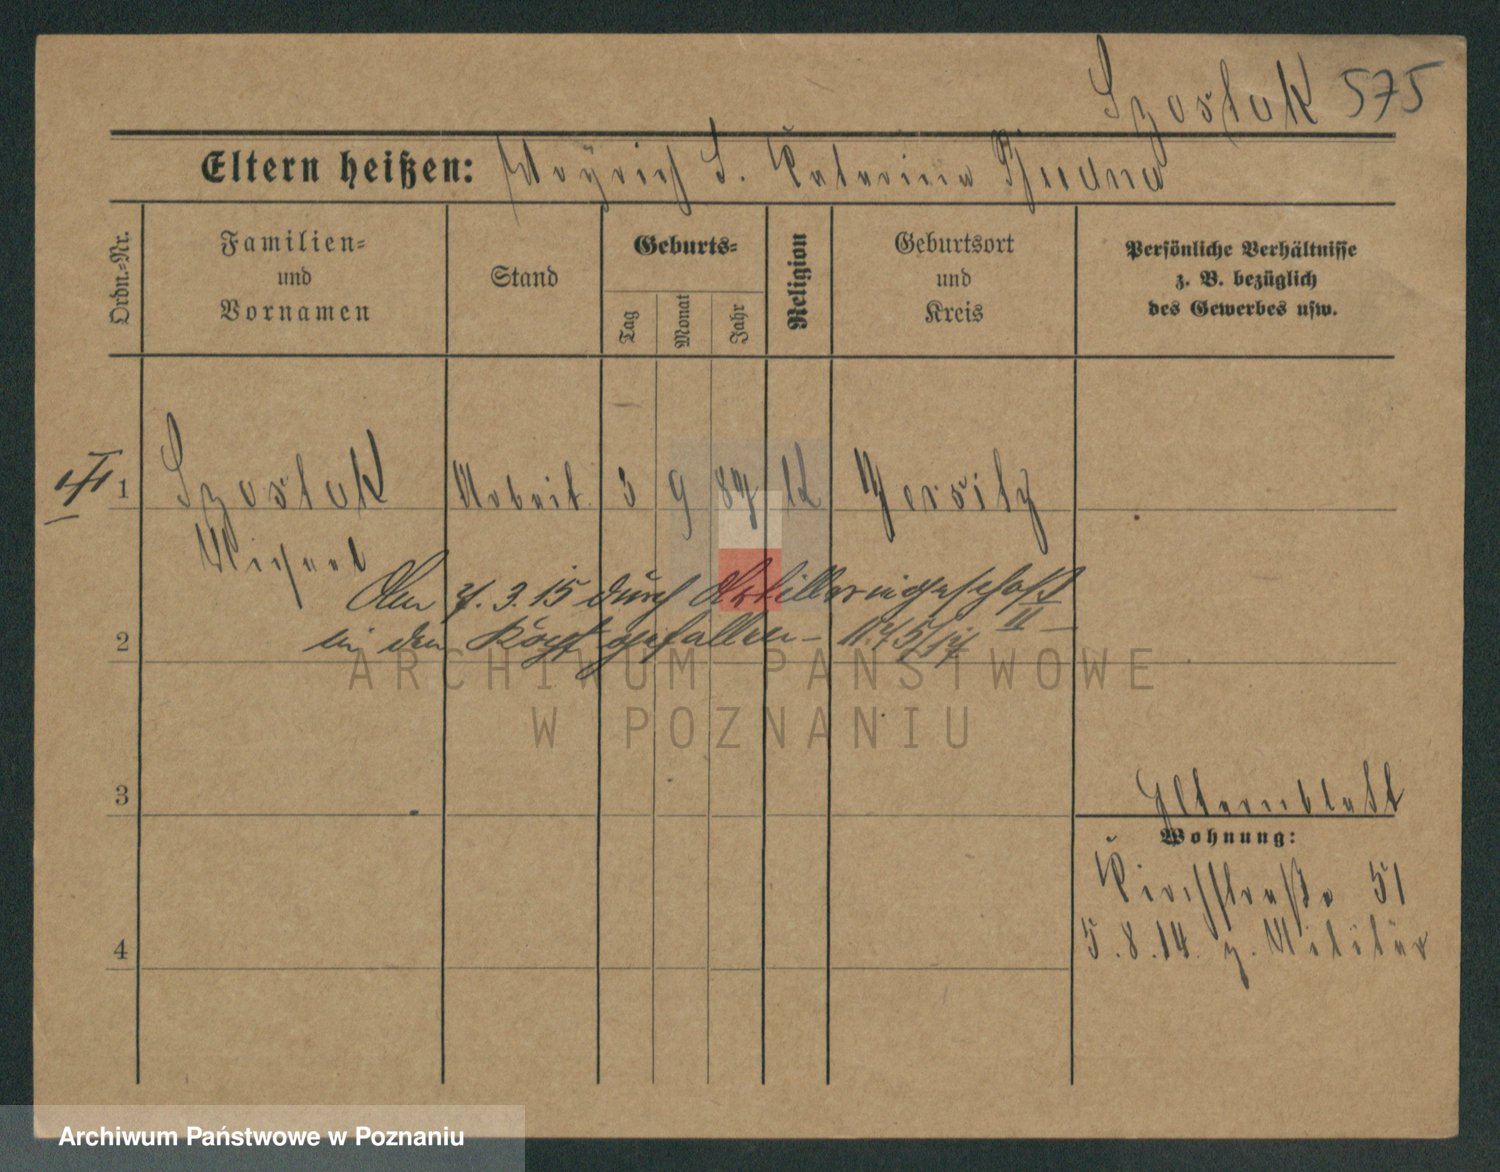 Szostak 575
Eltern heißen: S. Katarina
Ordn.-Nr.
Familien- und Vornamen
Stand
Geburts-
Tag
Monat
Jahr
Religion
Geburtsort und Kreis
Persönliche Verhältnisse z. B. bezüglich des Gewerbes usw.
1 Szostak Arbeit. 3 9 87 k Jersitz
Michael
Am 7. 3. 15 durch Artilleriegeschoß
2 in den Kopf gefallen – II
ARCHIWUM PAŃSTWOWE
W POZNANIU
3
Elternblatt
Wohnung:
Kirchstraße 51
4 5. 8. 14. z. Militär
Archiwum Państwowe w Poznaniu